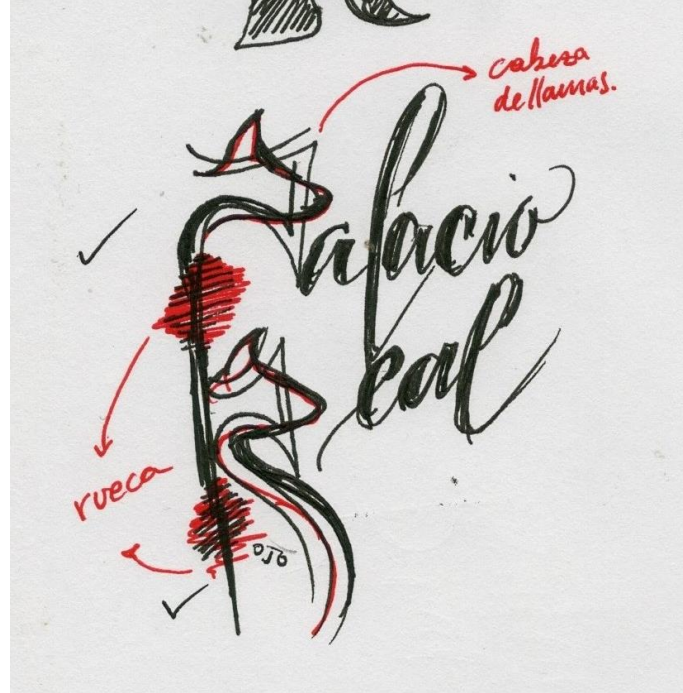 cabeza
de llamas.
Palacio
Real
rueca
OJO